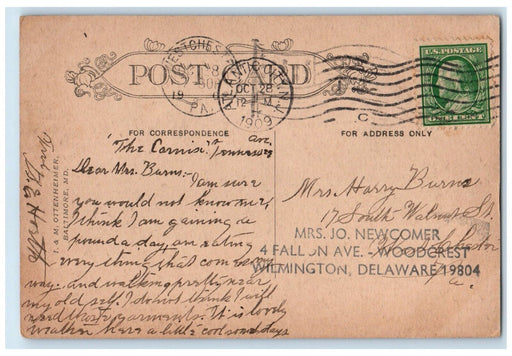 WESTCHEST
PA.
ATLANTIC CITY N.J.
OCT 28
12 M
1909
U.S. POSTAGE
ONE CENT
POST CARD
FOR CORRESPONDENCE
FOR ADDRESS ONLY
"The Corniss" Tennessee
ave.
Dear Mrs. Burns:-
I am sure
you would not know me,
I think I am gaining a
pound a day, am eating
everything that comes my
way - and walking pretty near
my old self. I do not think I will
need those garments. It is lovely
weather here a little cool some days
Write
I. & M. OTTENHEIMER,
BALTIMORE, MD.
Mrs. Harry Burns
17 South Walnut St
West Chester
Pa.
MRS. JO. NEWCOMER
4 FALLON AVE. - WOODCREST
WILMINGTON, DELAWARE 19804